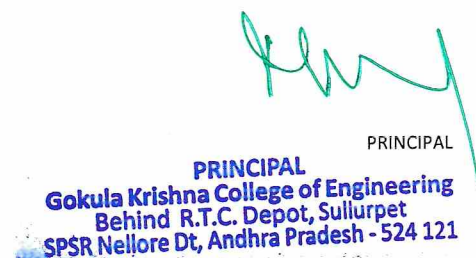 PRINCIPAL
PRINCIPAL
Gokula Krishna College of Engineering
Behind R.T.C. Depot, Sullurpet
SPSR Nellore Dt, Andhra Pradesh - 524 121